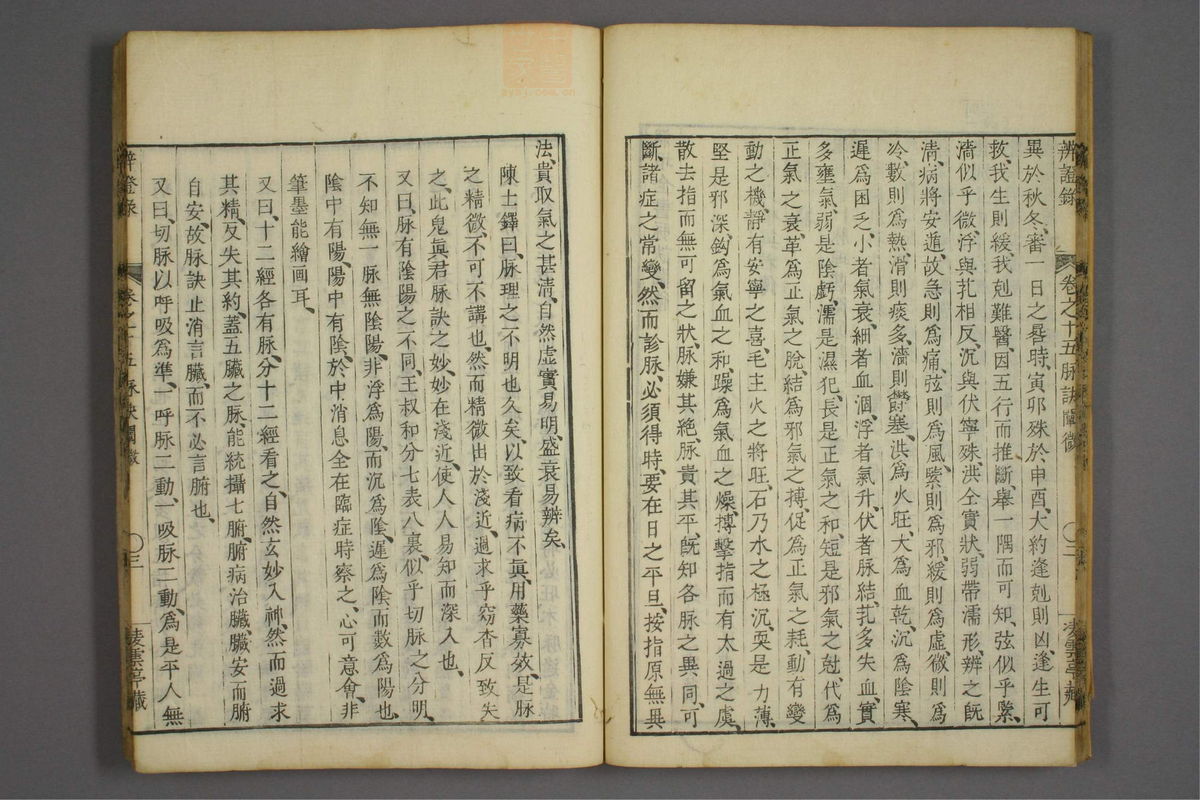 辨證錄 卷之十五脉訣闡微 〇二 凌雲亭藏
異於秋冬、審一日之晷時、寅夘殊於申酉、大約逢剋則凶、逢生可
救、我生則緩、我剋難醫、因五行而推斷、舉一隅而可知、弦似乎緊、
濇似乎微、浮與芤相反、沉與伏寧殊、洪仝實狀、弱帶濡形、辨之旣
清、病將安遁、故急則爲痛、弦則爲風、緊則爲邪、緩則爲虛、微則爲
冷、數則爲熱、滑則痰多、濇則欝塞、洪爲火旺、大爲血乾、沉爲陰寒、
遲爲困乏、小者氣衰、細者血涸、浮者氣升、伏者脉結、芤多失血、實
多壅氣、弱是陰虧、濡是濕犯、長是正氣之和、短是邪氣之尅、代爲
正氣之衰、革爲正氣之脫、結爲邪氣之搏、促爲正氣之耗、動有變
動之機、靜有安寧之喜、毛主火之將旺、石乃水之極沉、耎是力薄、
堅是邪深、鈎爲氣血之和、躁爲氣血之燥、搏擊指而有太過之虞、
散去指而無可留之狀、脉嫌其絶、脉貴其平、旣知各脉之異同、可
斷諸症之常變、然而診脉、必須得時、要在日之平旦、按指原無異
法、貴取氣之甚清、自然虛實易明、盛衰易辨矣、
陳士鐸曰、脉理之不明也久矣、以致看病不眞、用藥寡效、是脉
之精微、不可不講也、然而精微出於淺近、過求乎窈杳、反致失
之、此鬼眞君脉訣之妙、妙在淺近、使人人易知而深入也、
又曰、脉有陰陽之不同、王叔和分七表八裏、似乎切脉之分明、
不知無一脉無陰陽、非浮爲陽、而沉爲陰、遲爲陰而數爲陽也、
陰中有陽、陽中有陰、於中消息、全在臨症時察之、心可意會、非
筆墨能繪画耳、
又曰、十二經各有脉、分十二經看之、自然玄妙入神、然而過求
其精、反失其約、蓋五臟之脉、能統攝七腑、腑病治臟、臟安而腑
自安、故脉訣止消言臟、而不必言腑也、
又曰、切脉以呼吸爲準、一呼脉二動、一吸脉二動、爲是平人無
辨證錄 卷之十五脉訣闡微 〇三 凌雲亭藏